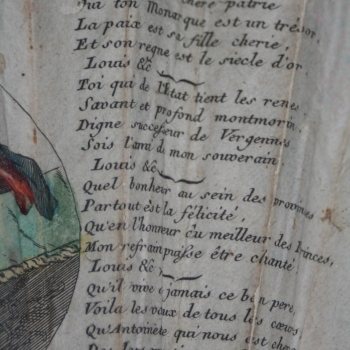 chere patrie
Qui ton Monarque est un trésor,
La paix est sa fille cherie,
Et son regne est le siecle d'or
Louis &c
Toi qui de l'état tient les renes
Savant et profond montmorin
Digne successeur de Vergennes
Sois l'ami de mon souverain
Louis &c
Quel bonheur au sein des provinces
Partout est la félicité,
Qu'en l'honneur du meilleur des Princes,
Mon refrain puisse être chanté,
Louis &c
Qu'il vive à jamais ce bon pere,
Voila les vœux de tous les cœurs
Qu'Antoinete qui nous est chere